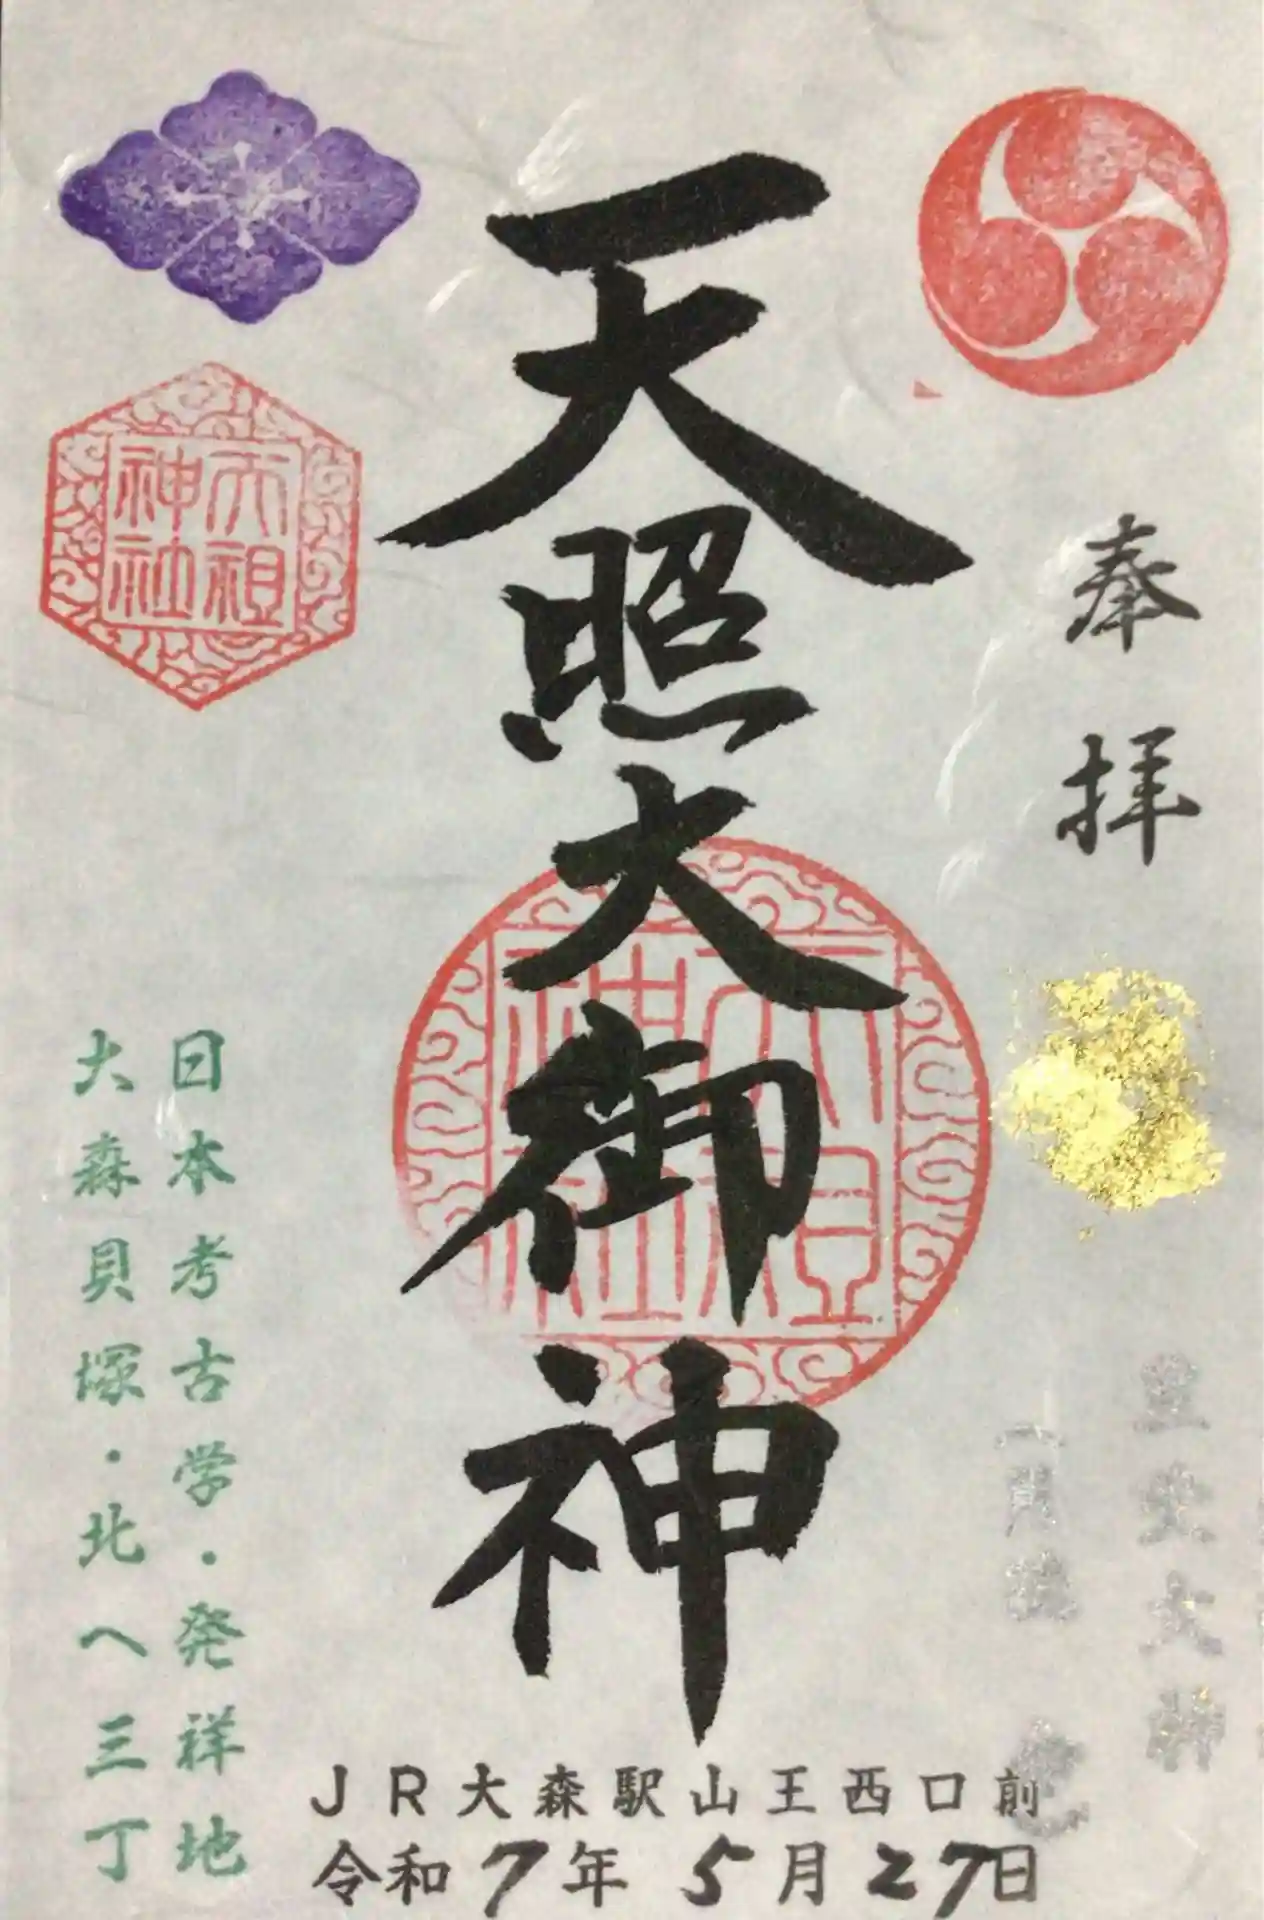 奉拝
天照大御神
天祖
神社
天祖
神社
日本考古学・発祥地
大森貝塚・北へ三丁
JR大森駅山王西口前
令和7年5月27日